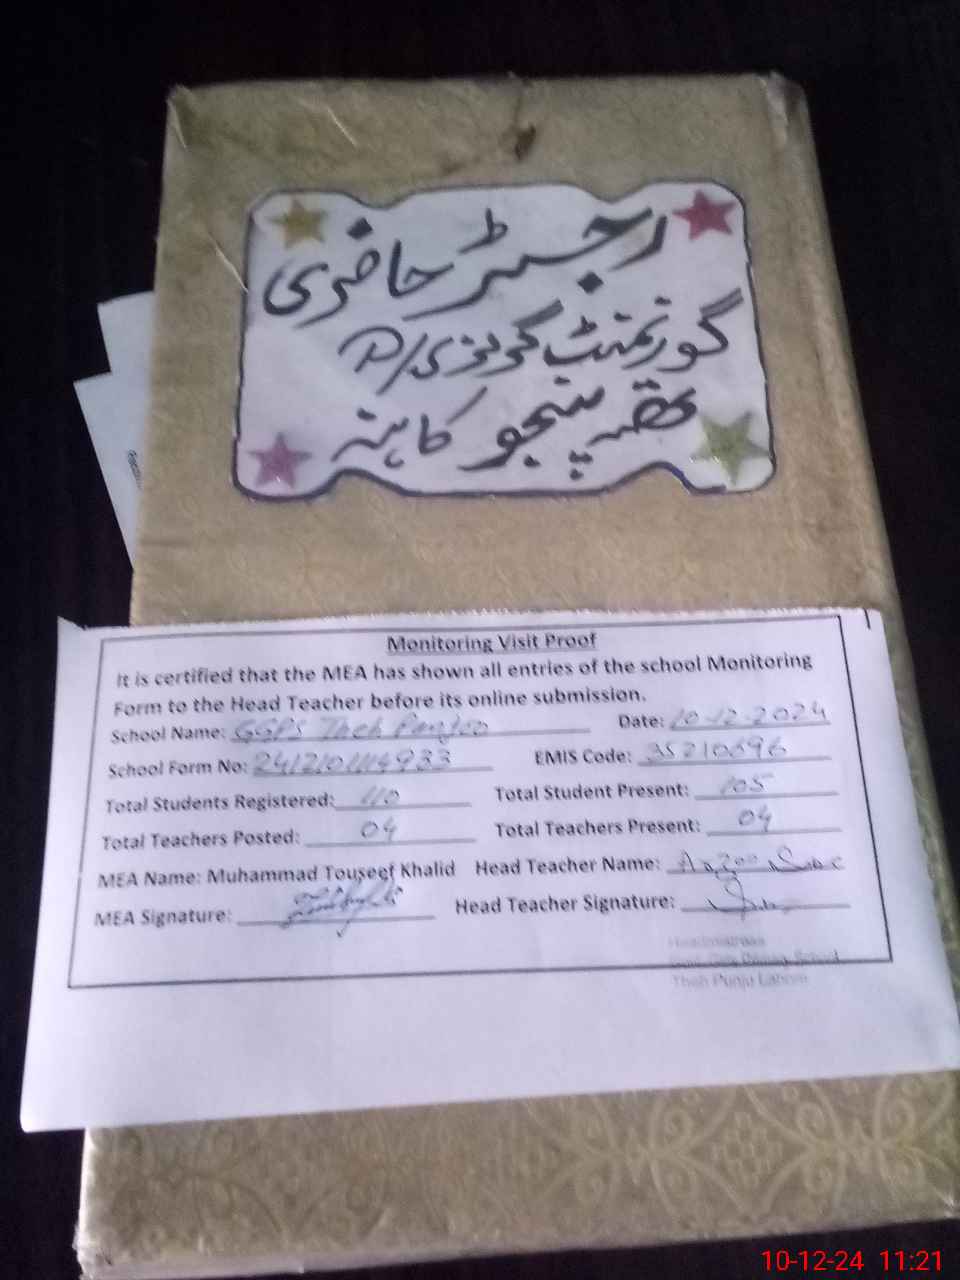 رجسٹر حاضری
گورنمنٹ گرلز P/
تھہ پنجو کاہنہ
Monitoring Visit Proof
It is certified that the MEA has shown all entries of the school Monitoring
Form to the Head Teacher before its online submission.
School Name: GGPS Theh Panjoo Date: 10-12-2024
School Form No: EMIS Code: 35210696
Total Students Registered: 110 Total Student Present: 105
Total Teachers Posted: 04 Total Teachers Present: 04
MEA Name: Muhammad Touseef Khalid Head Teacher Name: Arzoo
MEA Signature: Head Teacher Signature:
Headmistress
Govt. Girls Primary School
Theh Punju Lahore
10-12-24 11:21